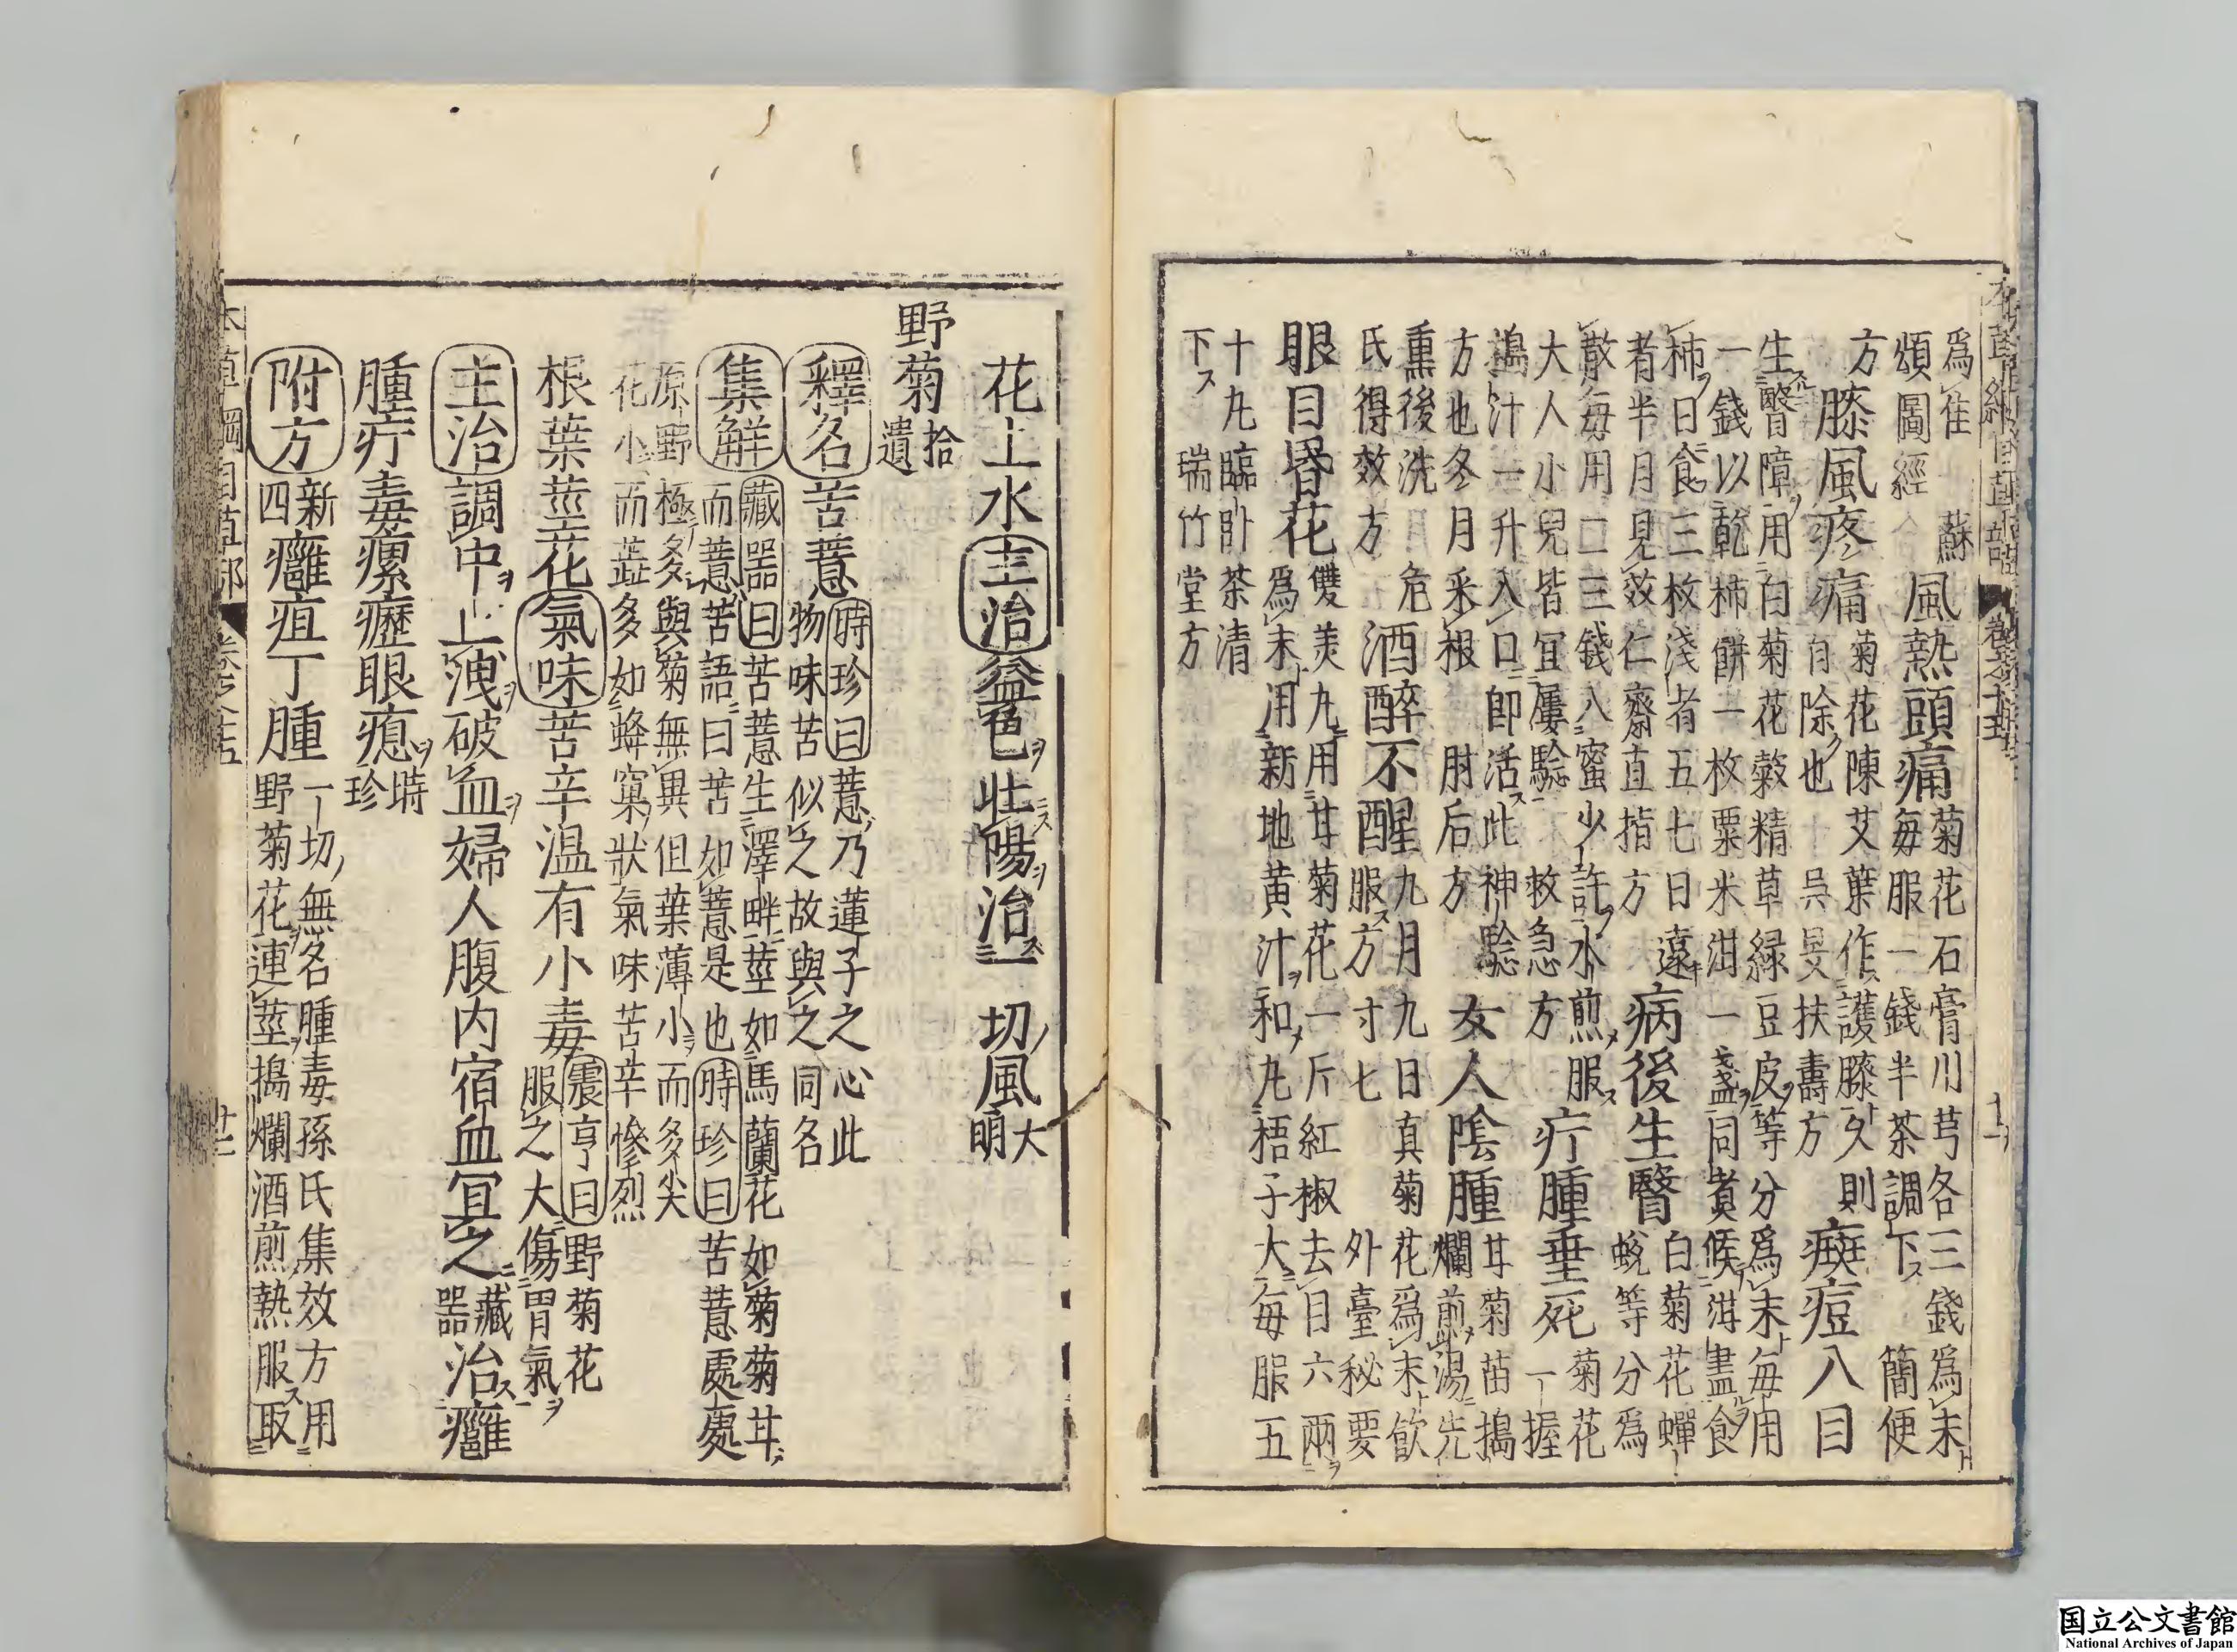 爲佳 蘇
頌圖經
風熱頭痛
菊花石膏川芎各三錢爲末
每服一錢半茶調下 簡便
方
膝風疼痛
菊花陳艾葉作護膝久則
自除也 吳旻扶壽方
癍痘入目
生瞖障用白菊花穀精草綠豆皮等分爲末每用
一錢以乾柿餅一枚粟米泔一盞同煮候泔盡食
柿日食三枚淺者五七日遠
者半月見效仁齋直指方
病後生瞖
白菊花蟬
蛻等分爲
散每用二三錢入蜜少許水煎服
大人小兒皆宜屢驗 救急方
疔腫垂死
菊花
一握
搗汁一升入口即活此神驗
方也冬月采根 肘后方
女人陰腫
甘菊苗搗
爛煎湯先
熏後洗 危
氏得效方
酒醉不醒
九月九日真菊花爲末飲
服方寸匕 外臺秘要
眼目昏花
雙美丸用甘菊花一斤紅椒去目六兩
爲末用新地黄汁和丸梧子大每服五
十丸臨卧茶清
下 瑞竹堂方
花上水主治益色壯陽治一切風
大
明
野菊
拾
遺
釋名苦薏
時珍曰薏乃蓮子之心此
物味苦似之故與之同名
集解
藏器曰苦薏生澤畔莖如馬蘭花如菊菊甘
而薏苦語曰苦如薏是也時珍曰苦薏處處
原野極多與菊無異但葉薄小而多尖
花小而蕋多如蜂窠狀氣味苦辛慘烈
根葉莖花氣味苦辛溫有小毒
震亨曰野菊花
服之大傷胃氣
主治調中止洩破血婦人腹内宿血宜之
藏
器
治癰
腫疔毒瘰癧眼瘜
時
珍
附方
新
四
癰疽丁腫
一切無名腫毒孫氏集效方用
野菊花連莖搗爛酒煎熱服取
国立公文書館
National Archives of Japan